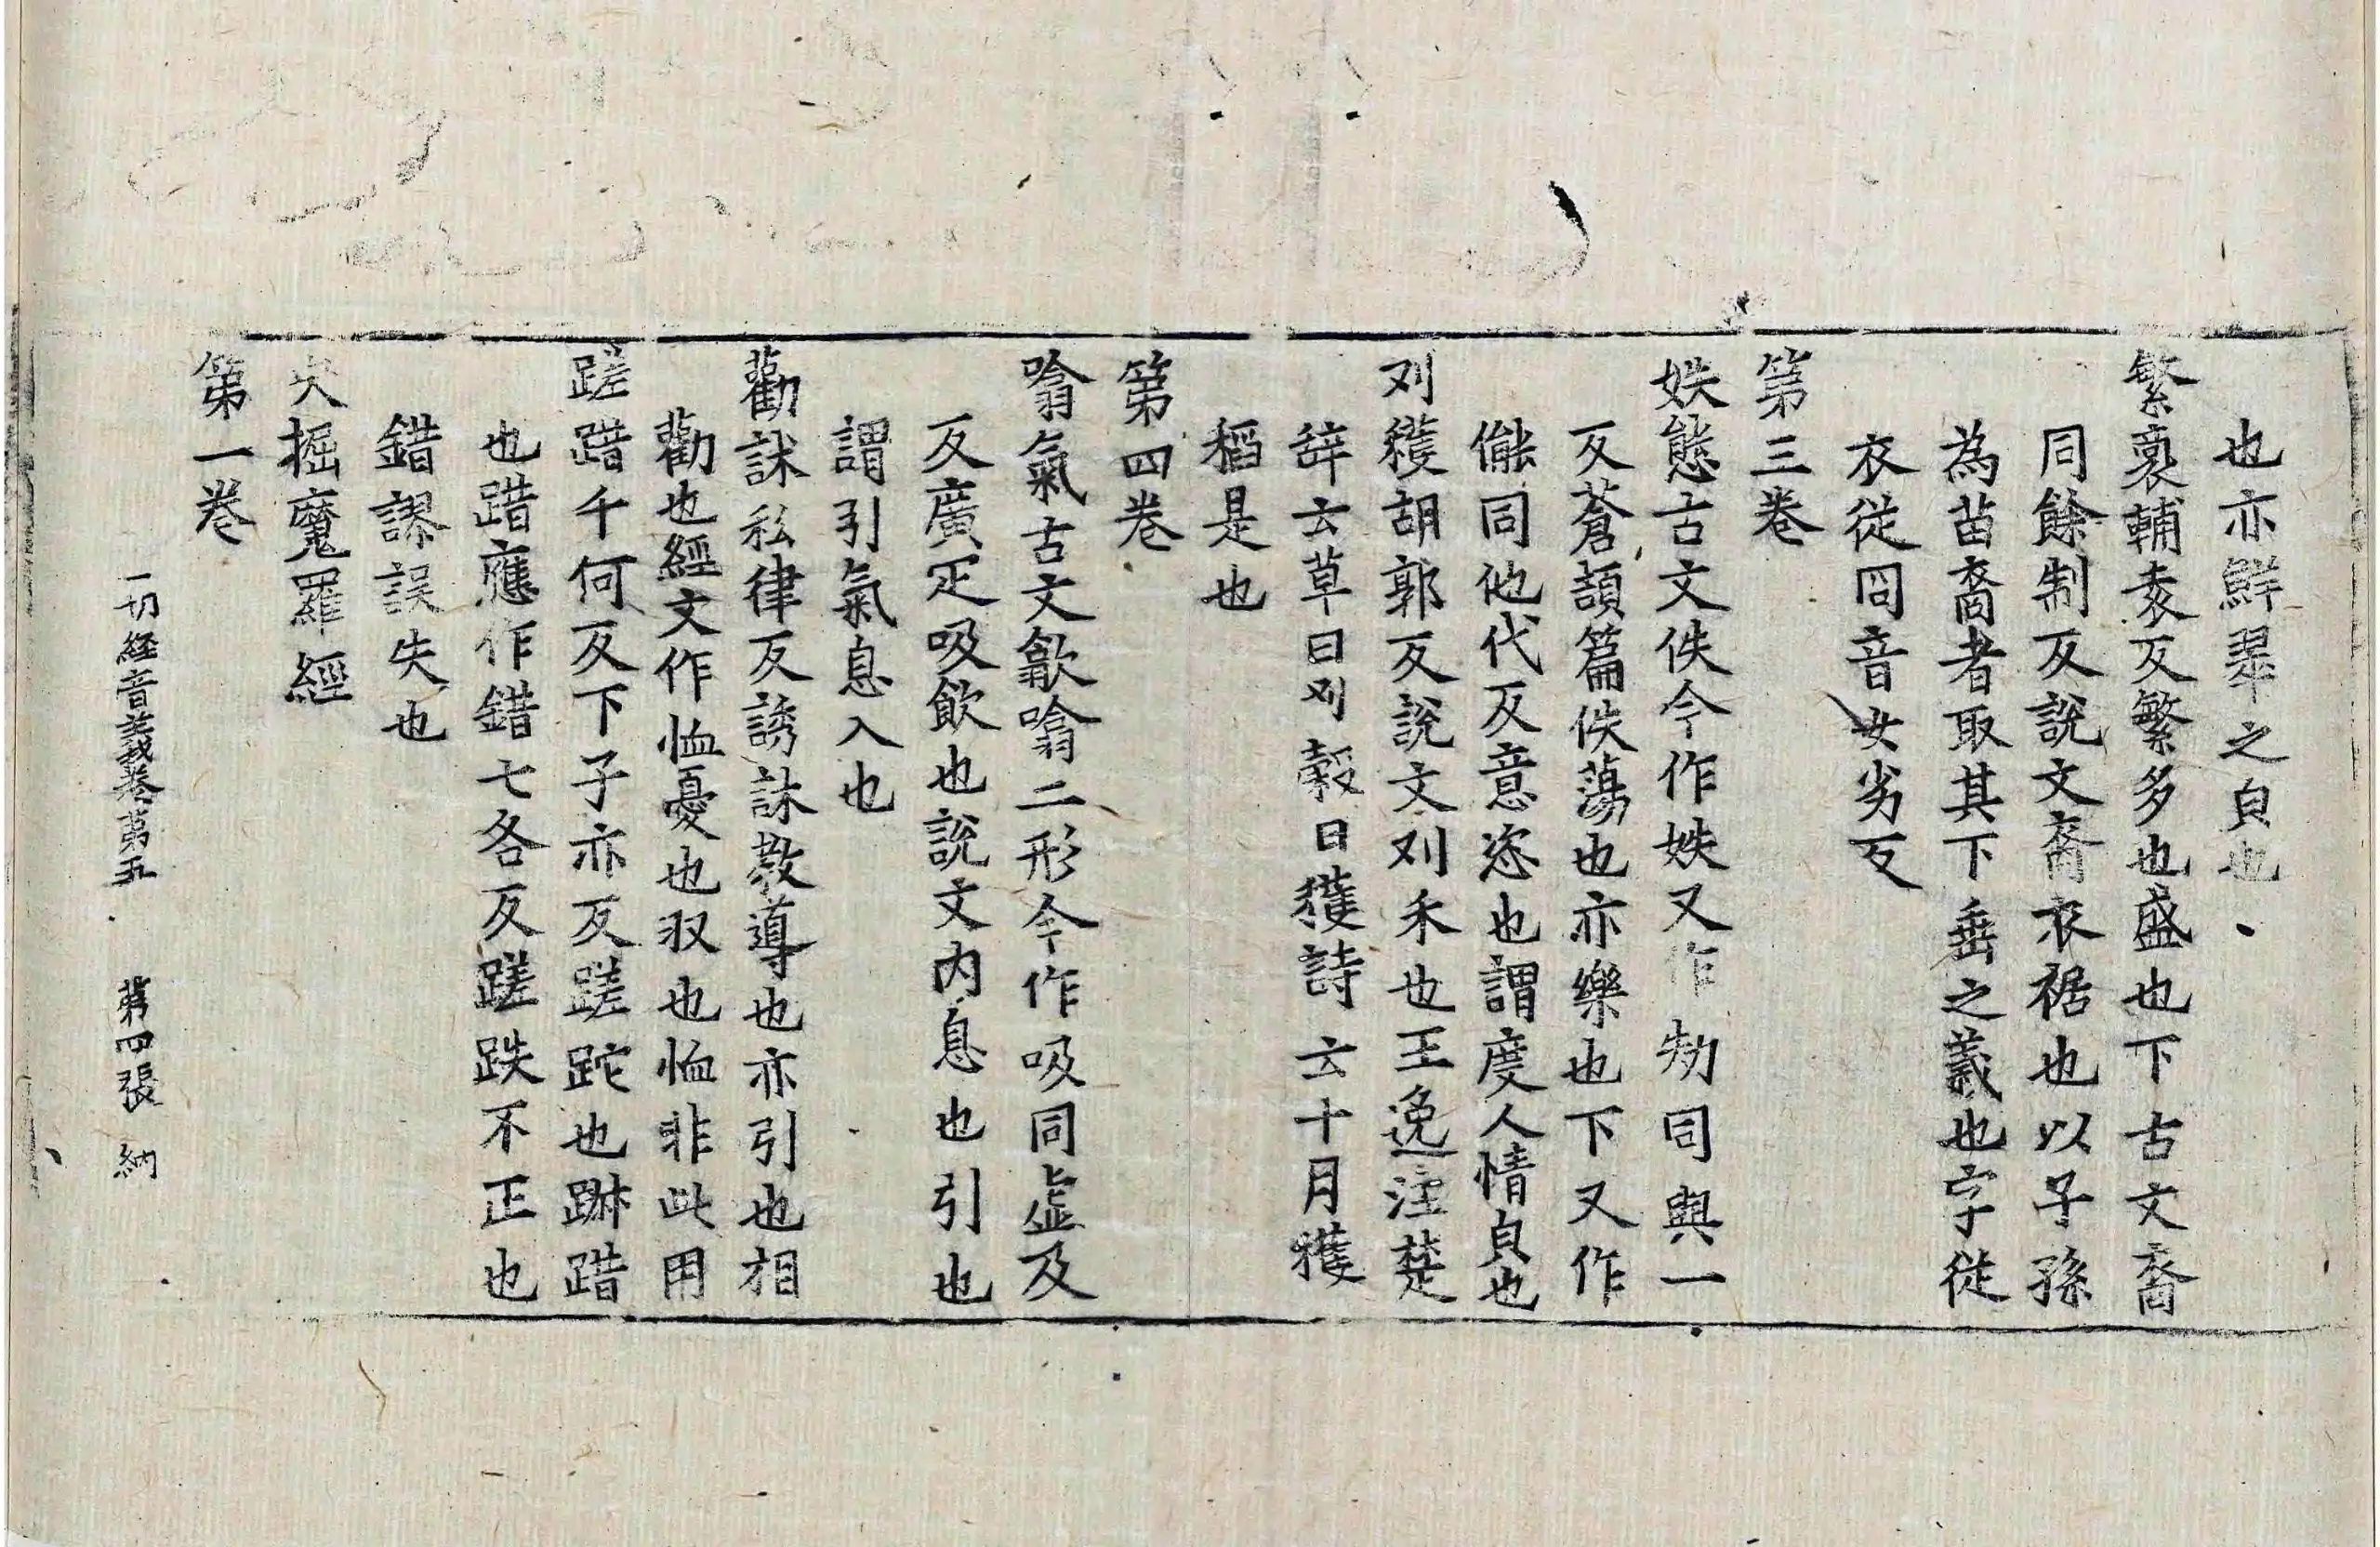 也亦鮮翠之皃也
繁裔輔袁反繁多也盛也下古文裔
同餘制反說文裔衣裾也以子孫
為苗裔者取其下垂之義也字従
衣従冏音女劣反
第三巻
妷態古文佚今作妷又作劮同與一
反蒼頡篇佚蕩也亦樂也下又作
儱同他代反意恣也謂度人情皃也
刈穫胡郭反說文刈禾也王逸注楚
辞云草曰刈穀曰穫詩云十月穫
稻是也
第四巻
噏氣古文歙噏二形今作吸同虛及
反廣疋吸飲也說文內息也引也
謂引氣息入也
勸訹私律反誘訹教導也亦引也相
勸也經文作恤憂也収也恤非此用
蹉踖千何反下子亦反蹉跎也踧踖
也踖應作錯七各反蹉跌不正也
錯謬誤失也
央掘魔羅經
第一巻
一切経音義巻第五 第四張 納